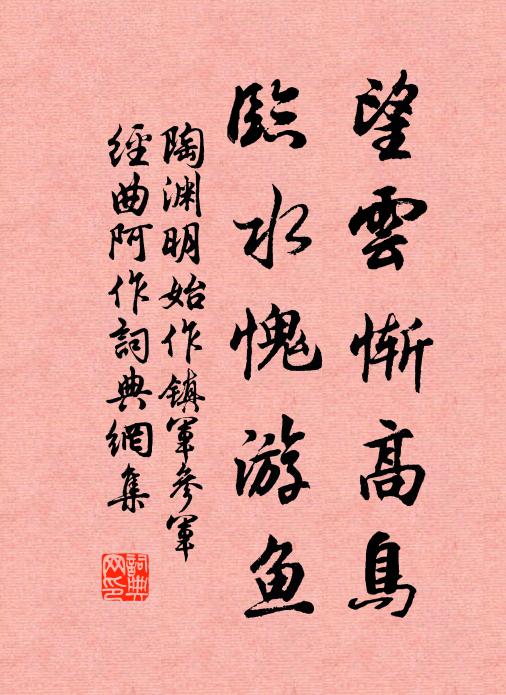 望雲慚高鳥
臨水愧游魚
陶渊明始作鎮軍參軍
經曲阿作詞典網集
詞典
网印